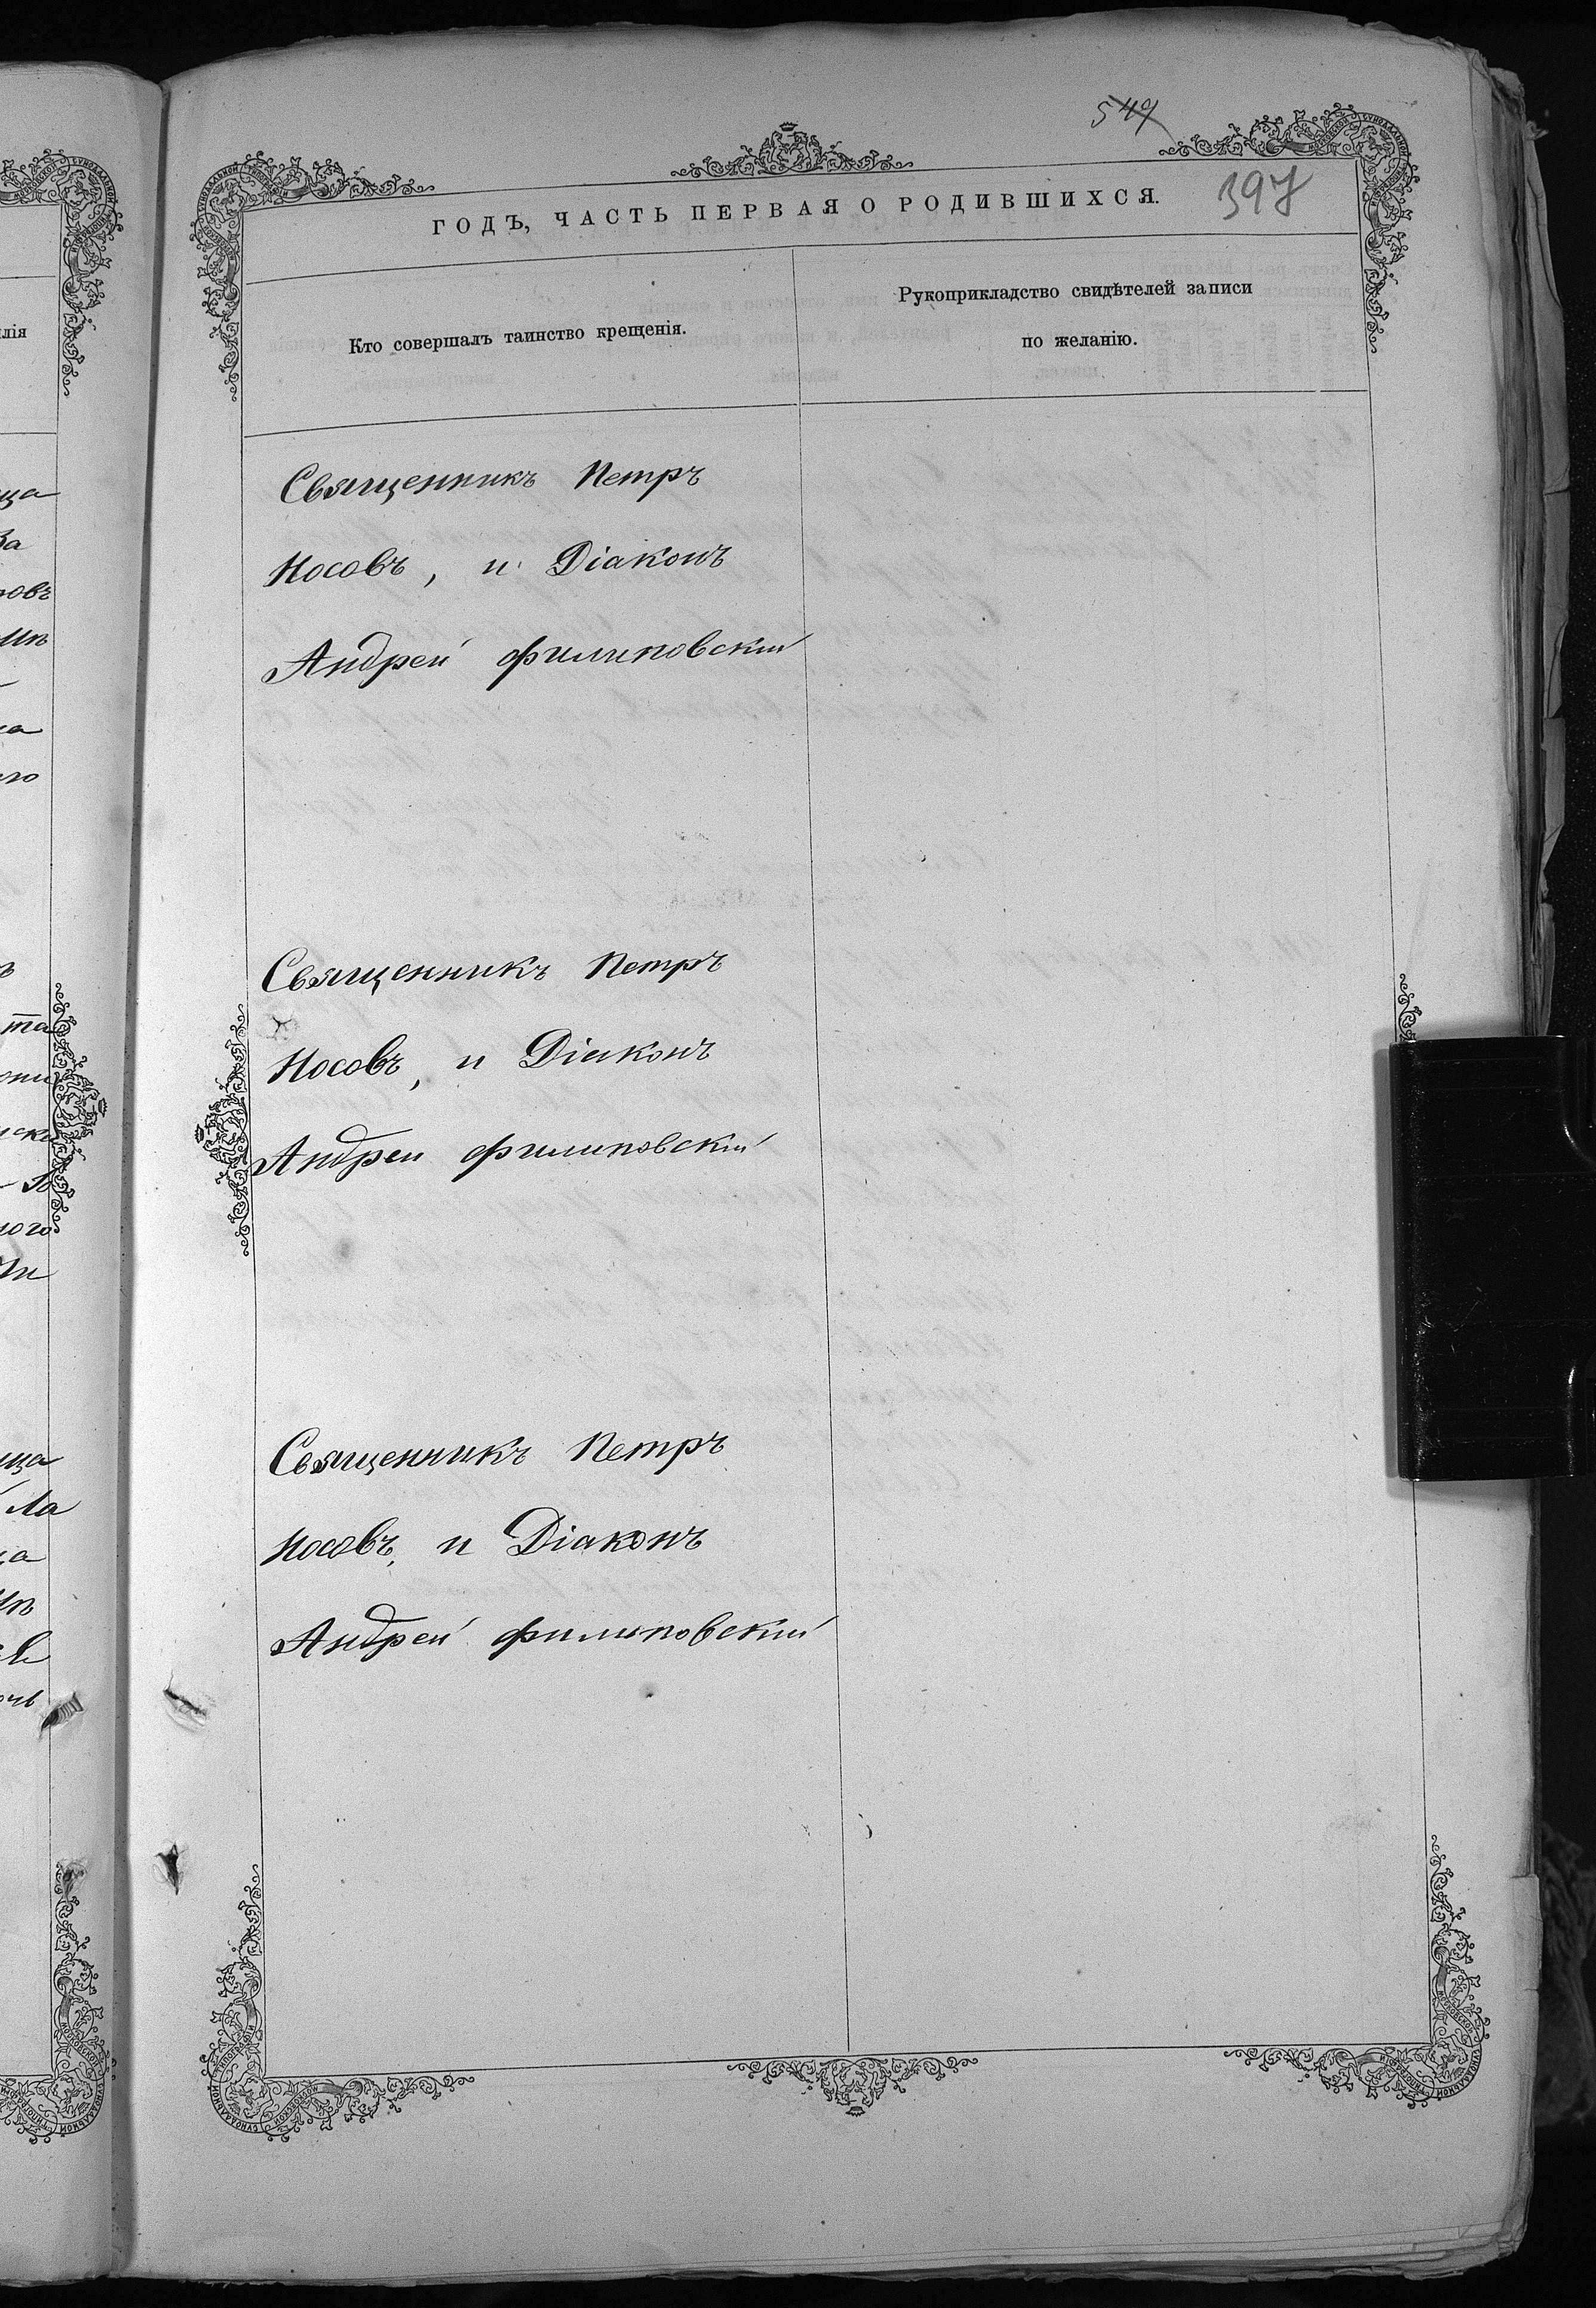 549
397
ГОДЪ, ЧАСТЬ ПЕРВАЯ О РОДИВШИХСЯ.
лія
Кто совершалъ таинство крещенія.
Рукоприкладство свидѣтелей записи
по желанію.
Священникъ Петръ
Носовъ, и Діаконъ
Андрей Филиповскій
Священникъ Петръ
Носовъ, и Діаконъ
Андреи Филиповскій
Священникъ Петръ
Носовъ, и Діаконъ
Андрей Филиповскій